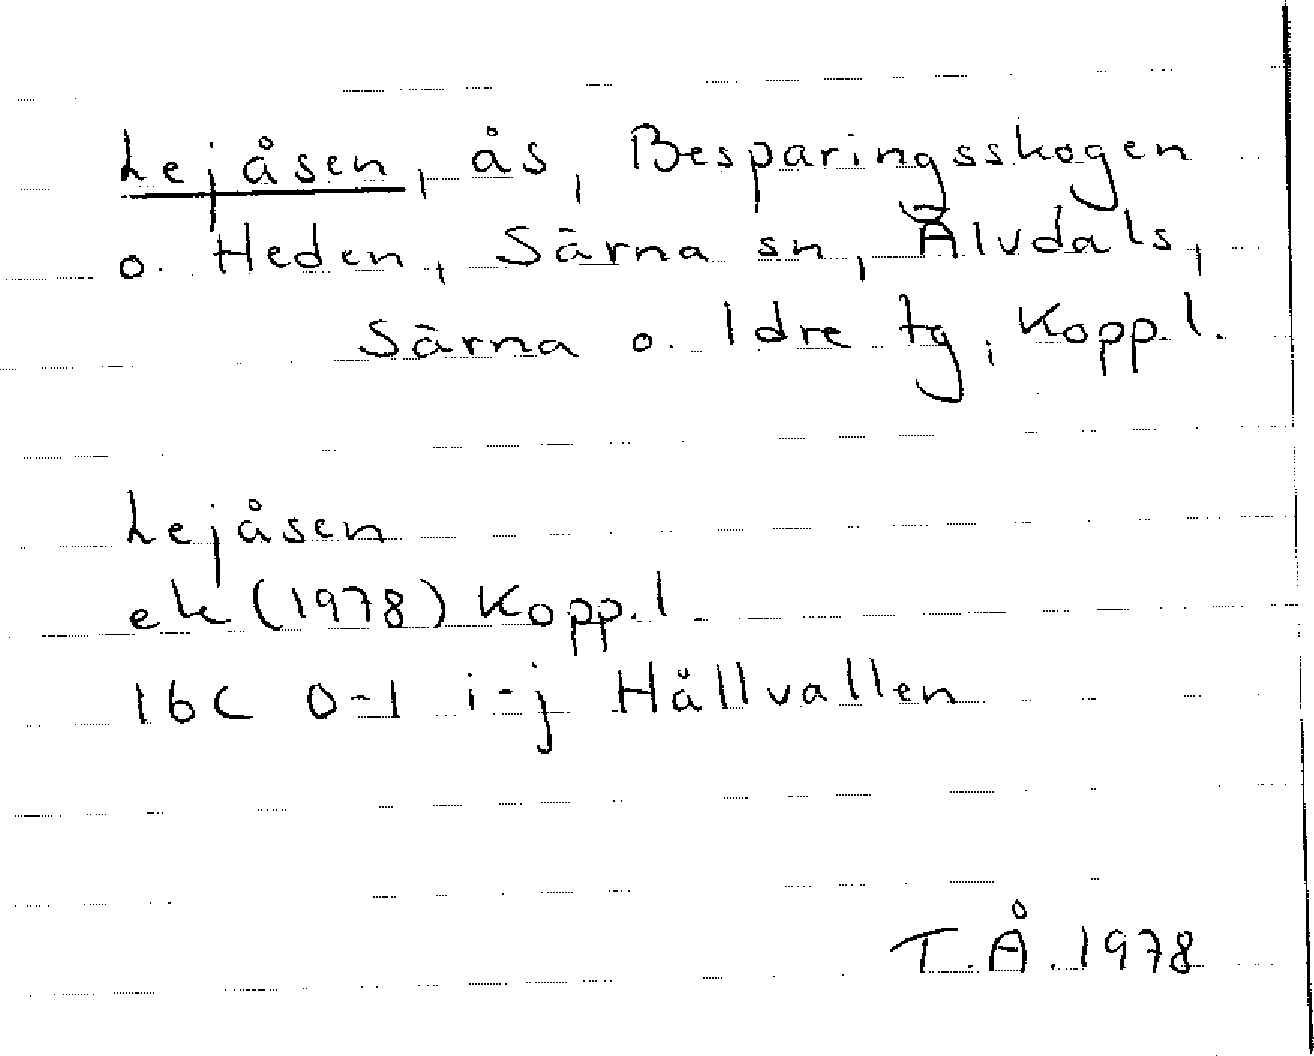 Lejåsen, ås, Besparingsskogen
o. Heden, Särna sn, Älvdals,
Särna o. Idre tg, Kopp. l.
Lejåsen
ek (1978) Kopp. l
16C 0-1 i-j Hållvallen
T.Å. 1978